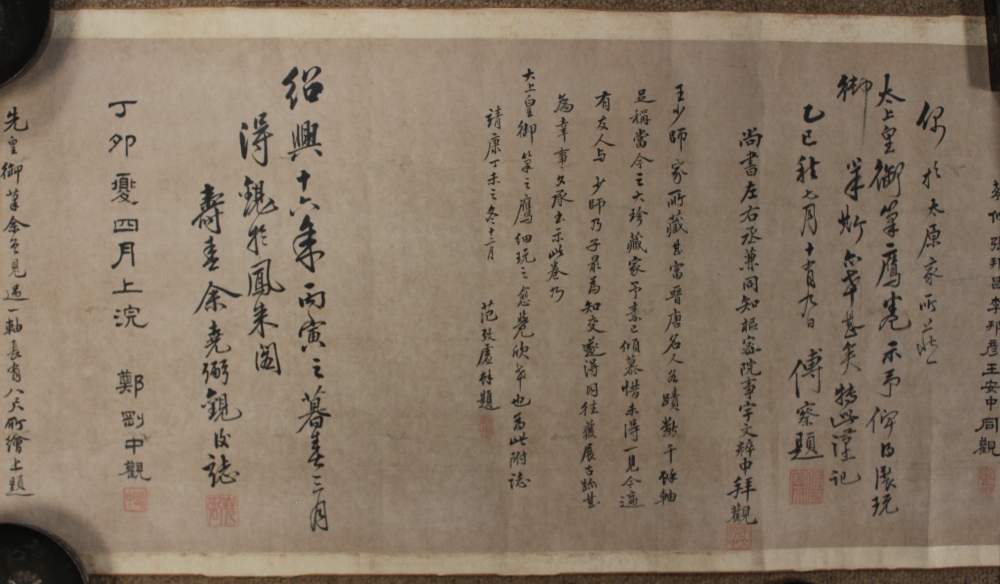 張邦昌李邦彥王安中同觀
太原家所
太上皇御筆鷹卷示予得展玩
御筆斯亦幸甚矣特此謹記
乙巳秋七月十有九日 傅察題
尚書左右丞兼同知樞密院事宇文粹中拜觀
王少師家所藏甚富晉唐名人名蹟數千餘軸
足稱當今之大珍藏家予素已傾慕惜未得一見今適
有友人与少師乃子最為知交遂得同往獲展古跡甚
為幸事久承出示此卷乃
太上皇御筆之鷹細玩之愈覺欣幸也為此附誌
靖康丁未之冬十二月 范致虛錄題
紹興十六年丙寅之暮春三月
得觀於鳳朱閣
壽春余堯弼觀後誌
丁卯夏四月上浣 鄭剛中觀
先皇御筆余曾見過一軸長有八尺所繪上題